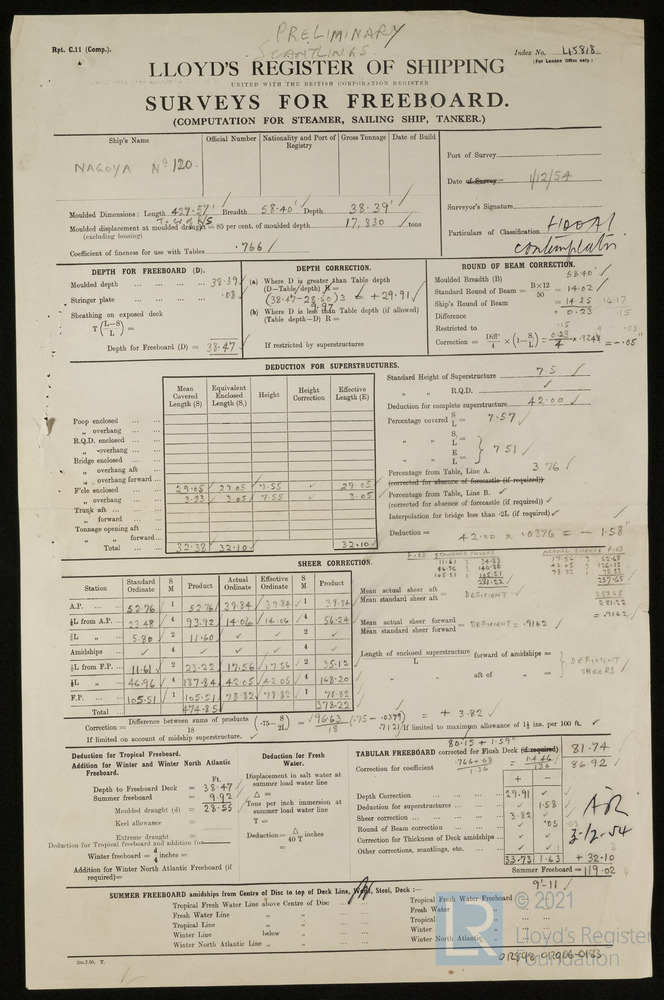 PRELIMINARY
SCANTLINGS.
Rpt. C.11 (Comp.).
Index No. 45818.
(For London Office only.)
LLOYD'S REGISTER OF SHIPPING
UNITED WITH THE BRITISH CORPORATION REGISTER
SURVEYS FOR FREEBOARD.
(COMPUTATION FOR STEAMER, SAILING SHIP, TANKER.)
Ship's Name
Official Number
Nationality and Port of Registry
Gross Tonnage
Date of Build
NAGOYA No 120.
Port of Survey
Date of Survey 1/12/54
Surveyor's Signature
Particulars of Classification +100A1
contemplated
Moulded Dimensions: Length 427.57' Breadth 58.40' Depth 38.39'
Moulded displacement at moulded draught = 85 per cent. of moulded depth 17,830 tons
(excluding bossing)
Coefficient of fineness for use with Tables .766
DEPTH FOR FREEBOARD (D).
Moulded depth 38.39
Stringer plate .08
Sheathing on exposed deck
T (L–S / L) =
Depth for Freeboard (D) = 38.47
DEPTH CORRECTION.
(a) Where D is greater than Table depth
(D—Table depth) R =
(38.47-28.50) 3 = +29.91
9.97
(b) Where D is less than Table depth (if allowed)
(Table depth—D) R =
If restricted by superstructures
ROUND OF BEAM CORRECTION.
Moulded Breadth (B) 58.40
Standard Round of Beam = B×12 / 50 = 14.02
Ship's Round of Beam = 14.25 16.17
Difference 0.23
Restricted to
Correction = Diff / 4 × (1 – S₁ / L) = 0.23 / 4 × .9249 = -.05"
DEDUCTION FOR SUPERSTRUCTURES.
Mean Covered Length (S)
Equivalent Enclosed Length (S₁)
Height
Height Correction
Effective Length (E)
Poop enclosed
„ overhang
R.Q.D. enclosed
„ overhang
Bridge enclosed
„ overhang aft
„ overhang forward
F'cle enclosed 29.05 29.05 7.55 29.05
„ overhang 3.33 3.05 7.55 3.05
Trunk aft
„ forward
Tonnage opening aft
„ „ forward
Total 32.38 32.10 32.10
Standard Height of Superstructure 7.5
„ „ R.Q.D.
Deduction for complete superstructure 42.00
Percentage covered S / L = 7.57
„ „ S₁ / L =
„ „ E / L = } 7.51
Percentage from Table, Line A. 3.76
(corrected for absence of forecastle (if required))
Percentage from Table, Line B.
(corrected for absence of forecastle (if required))
Interpolation for bridge less than .2L (if required)
Deduction = 42.00 x .0376 = - 1.58"
SHEER CORRECTION.
Station
Standard Ordinate
S M
Product
Actual Ordinate
Effective Ordinate
S M
Product
A.P. 52.76 1 52.76 39.84 39.84 1 39.84
⅙L from A.P. 23.48 4 93.92 14.06 14.06 4 56.24
⅓L „ 5.80 2 11.60 2
Amidships 4 4
⅓L from F.P. 11.61 2 23.22 17.56 17.56 2 35.12
⅙L „ 46.96 4 187.84 42.05 42.05 4 168.20
F.P. 105.51 1 105.51 78.82 78.82 1 78.82
Total 474.85 378.22
Mean actual sheer aft / Mean standard sheer aft = DEFICIENT
Mean actual sheer forward / Mean standard sheer forward = DEFICIENT = .9162
Length of enclosed superstructure / L forward of amidships =
„ „ aft of „ =
} DEFICIENT SHEERS
Correction = Difference between sums of products / 18 (.75 – S / 2L) = 96.63 / 18 (.75 - .0379) = + 3.82
.7121
If limited on account of midship superstructure.
If limited to maximum allowance of 1½ ins. per 100 ft.
Deduction for Tropical Freeboard.
Addition for Winter and Winter North Atlantic Freeboard.
Ft.
Depth to Freeboard Deck = 38.47
Summer freeboard = 9.92
Moulded draught (d) = 28.55
Keel allowance =
Extreme draught =
Deduction for Tropical freeboard and addition for
Winter freeboard = d / 4 inches =
Addition for Winter North Atlantic Freeboard (if required)=
Deduction for Fresh Water.
Displacement in salt water at summer load water line
Δ =
Tons per inch immersion at summer load water line
T =
Deduction = Δ / 40 T inches
=
80.15 + 1.59"
TABULAR FREEBOARD corrected for Flush Deck (if required) 81.74
Correction for coefficient .766+.68 / 1.36 = 1.446 / 1.36 86.92
+ –
Depth Correction 29.91
Deduction for superstructures 1.58
Sheer correction 3.82
Round of Beam correction .05
Correction for Thickness of Deck amidships
Other corrections, scantlings, etc.
33.73 1.63 + 32.10
Summer Freeboard = 119.02
9'-11
3.12.54
SUMMER FREEBOARD amidships from Centre of Disc to top of Deck Line, Wood, Steel, Deck :—
Tropical Fresh Water Line above Centre of Disc
Fresh Water Line „ „
Tropical Line „ „
Winter Line below „
Winter North Atlantic Line „ „
Tropical Fresh Water Freeboard
Fresh Water „
Tropical „
Winter „
Winter North Atlantic „
2m.7.50. T.
LR
© 2021
Lloyd's Register
Foundation
012898-012906-0133